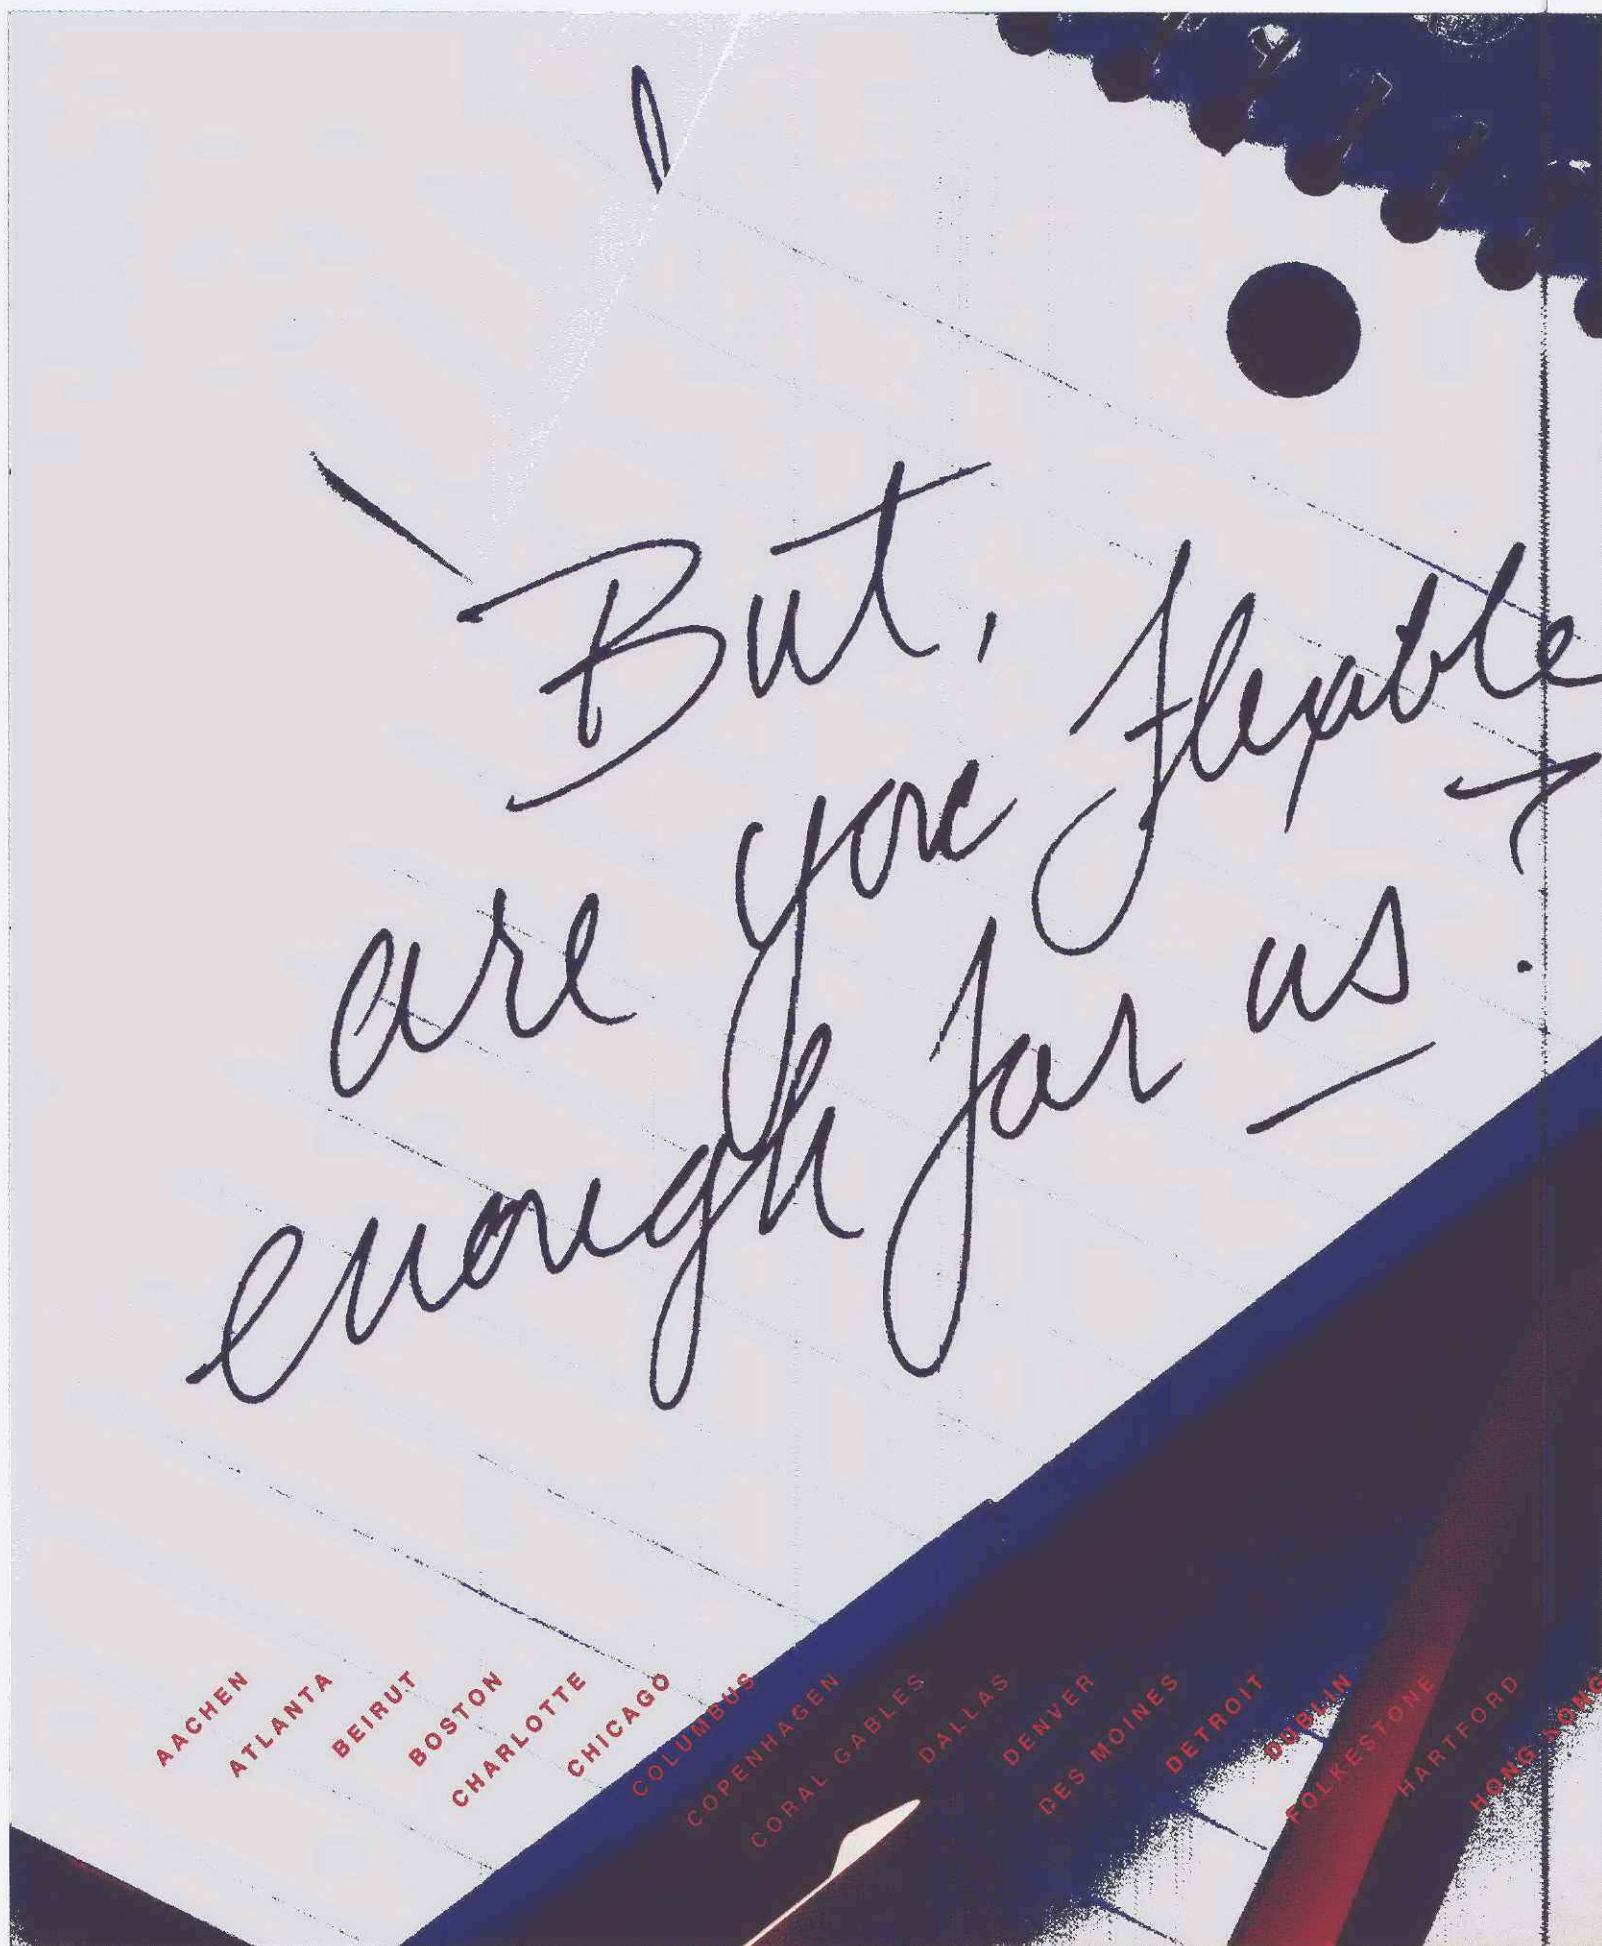 But,
are you flexible
enough for us?
AACHEN
ATLANTA
BEIRUT
BOSTON
CHARLOTTE
CHICAGO
COLUMBUS
COPENHAGEN
CORAL GABLES
DALLAS
DENVER
DES MOINES
DETROIT
DUBLIN
FOLKESTONE
HARTFORD
HONG KONG